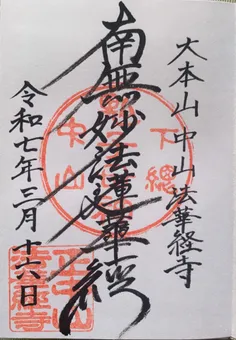 大本山中山法華経寺
南無妙法蓮華経
令和七年三月十六日
下總
中山